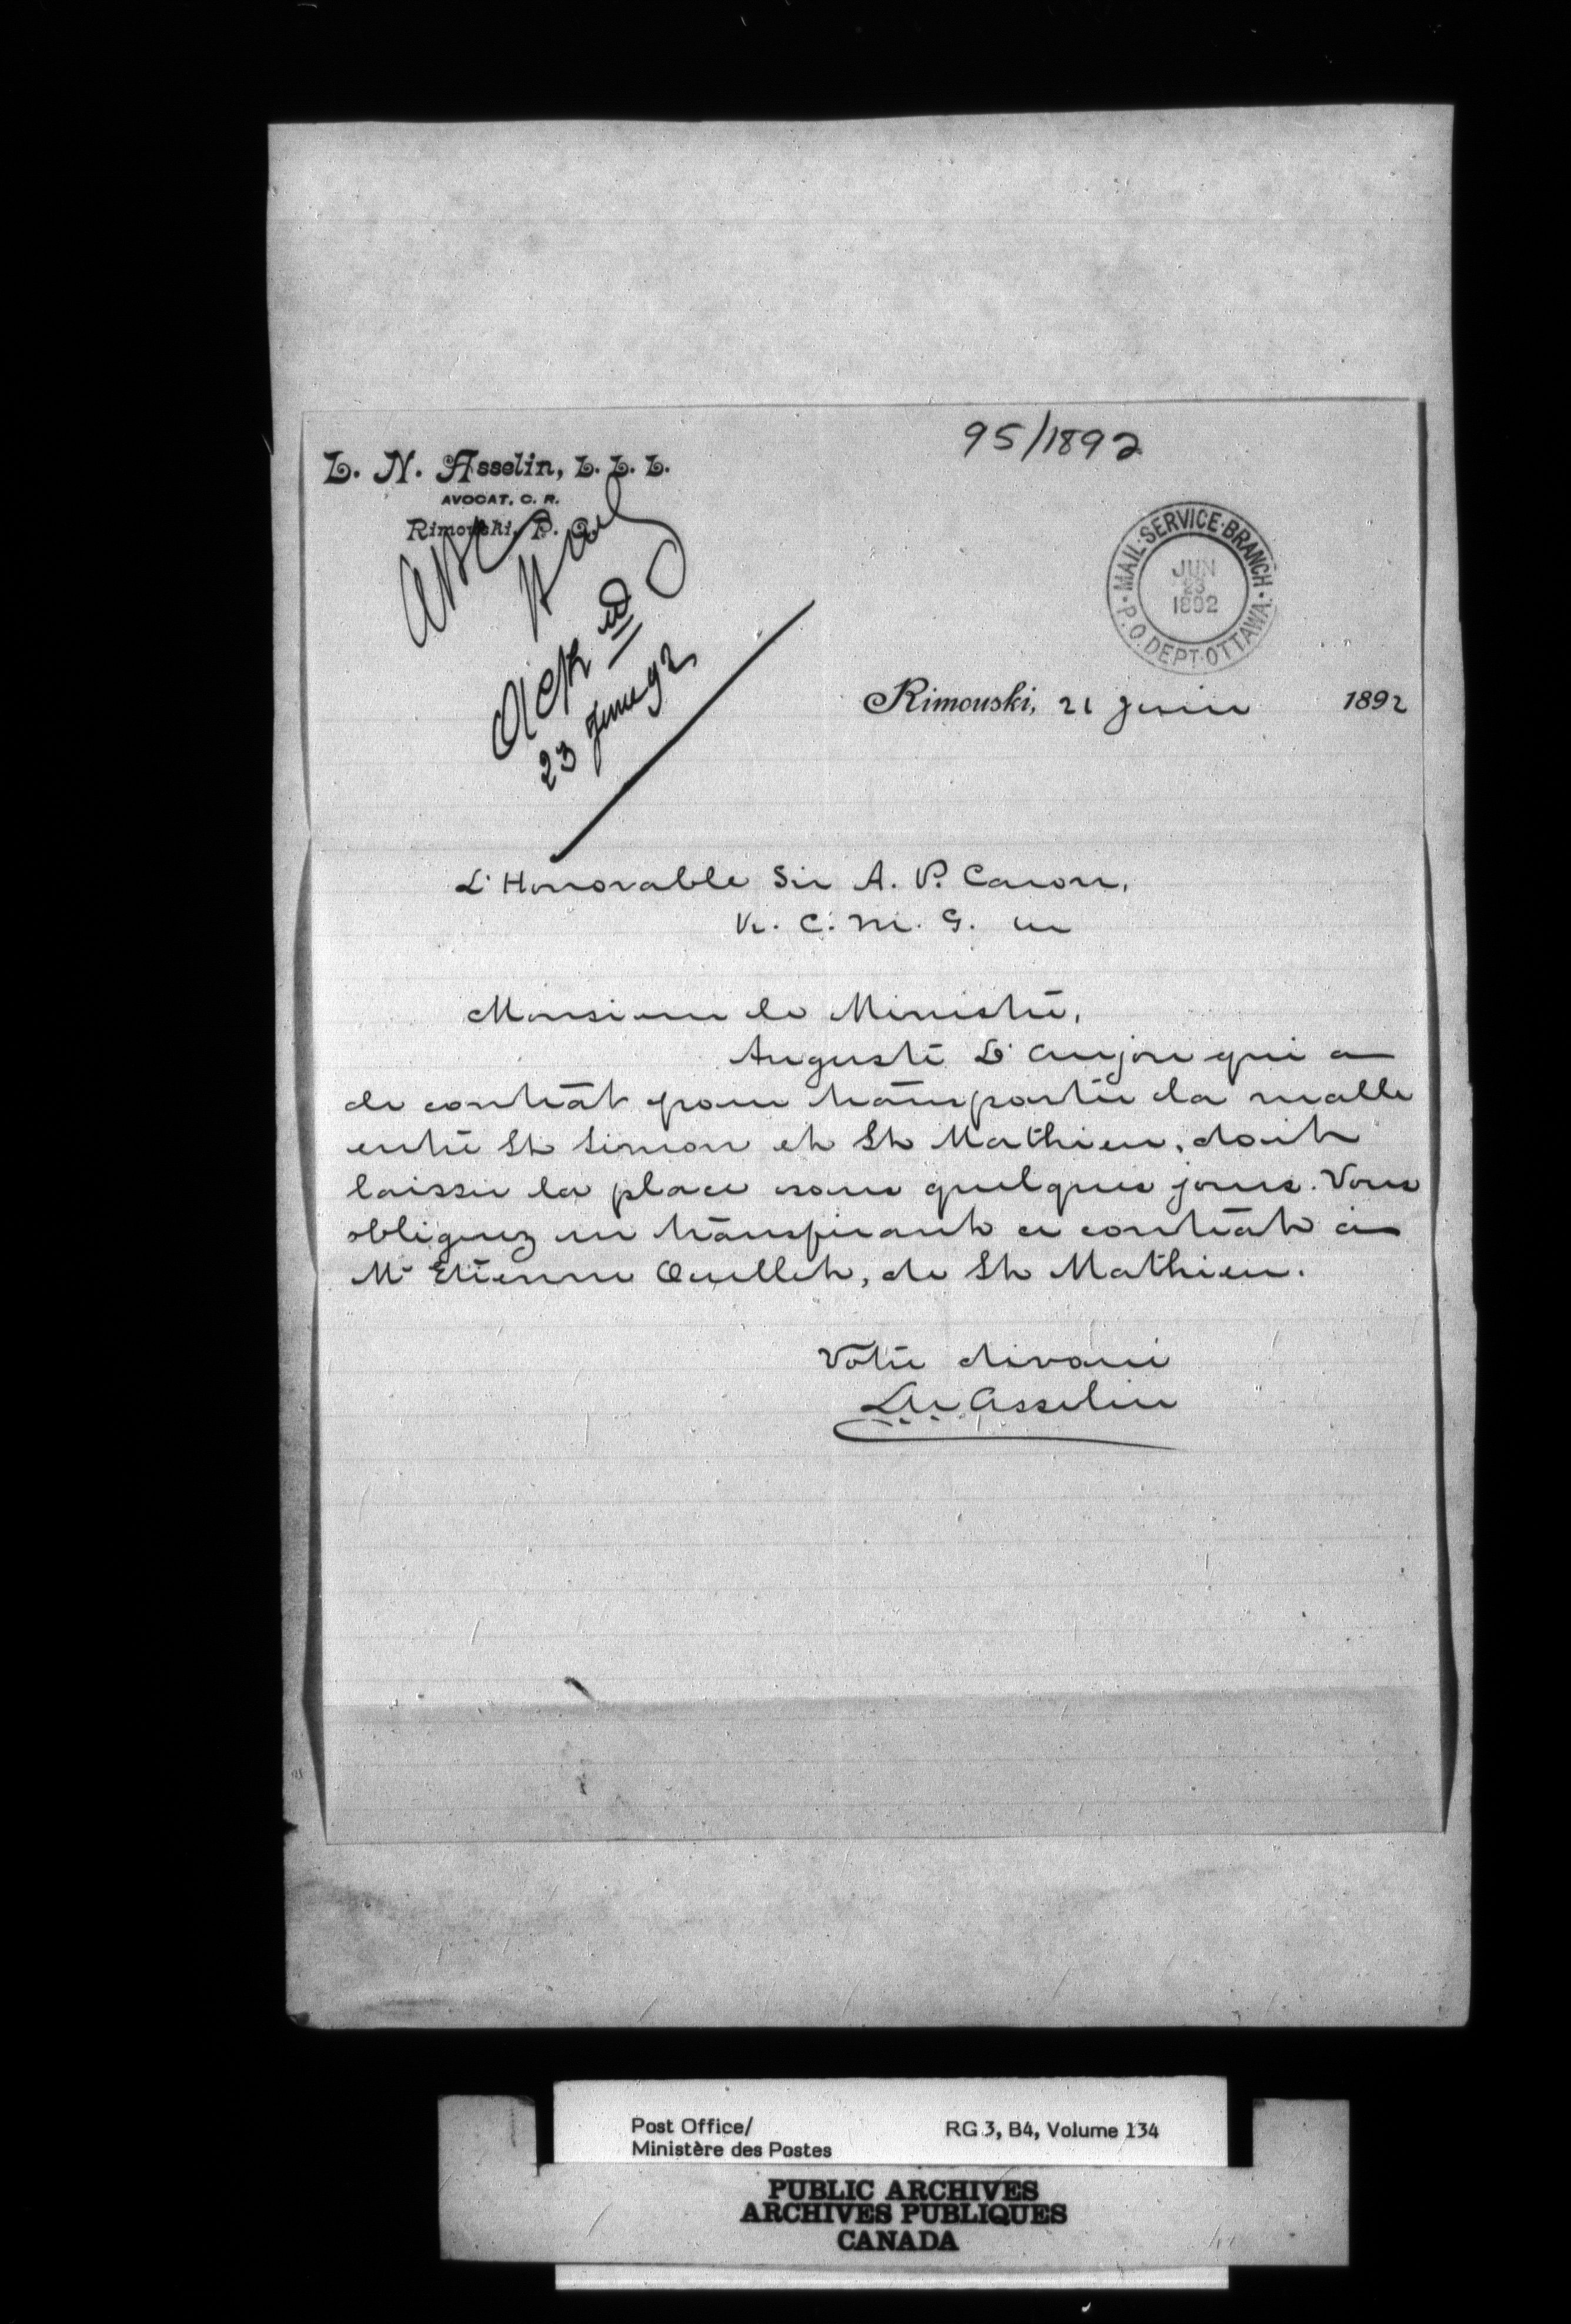 95/1892
L. N. Asselin, L. L. L.
AVOCAT, C. R.
Rimouski, P. Q.
Ack
23 June 92
MAIL·SERVICE·BRANCH·
P.O. DEPT·OTTAWA.
JUN
23
1892
Rimouski, 21 juin 1892
L'Honorable Sir A. P. Caron,
K. C. M. G.
Monsieur le Ministre,
Auguste D'Anjou qui a
le contrat pour transporter la malle
entre St Simon et St Mathieu, doit
laisser la place sous quelques jours. Vous
obligerez en transférant ce contrat à
Mr Etienne Ouellet, de St Mathieu.
Votre dévoué
LN Asselin
Post Office/
Ministère des Postes
RG 3, B4, Volume 134
PUBLIC ARCHIVES
ARCHIVES PUBLIQUES
CANADA